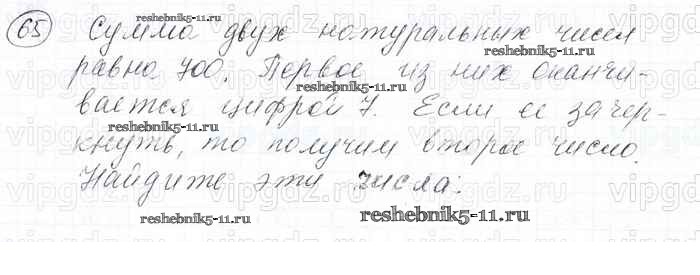 65 Сумма двух натуральных чисел
равно 700. Первое из них оканчи-
вается цифрой 7. Если ее зачер-
кнуть, то получим второе число.
Найдите эти числа.
reshebnik5-11.ru
reshebnik5-11.ru
reshebnik5-11.ru
reshebnik5-11.ru
reshebnik5-11.ru
reshebnik5-11.ru